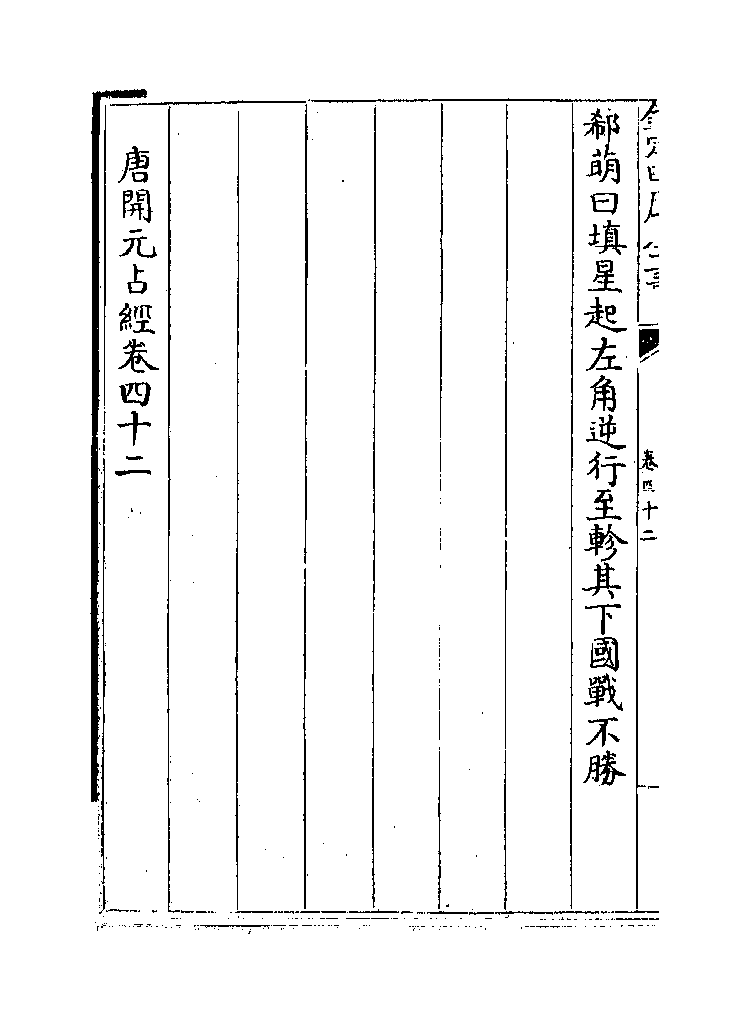 欽定四庫全書
卷四十二
郗萌曰填星起左角逆行至軫其下國戰不勝
唐開元占經卷四十二